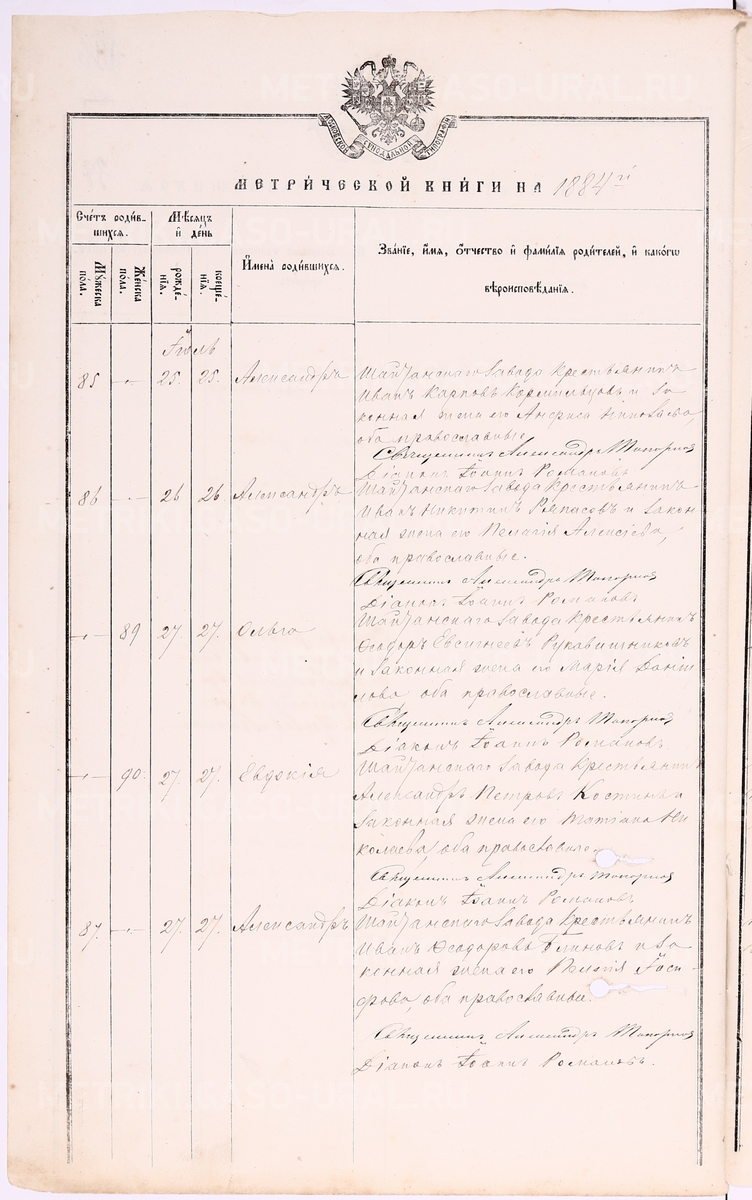 МОСКОВСКОЙ СѴНОДАЛЬНОЙ ТИПОГРАФІИ
МЕТРИ́ЧЕСКОЙ КНИ́ГИ НА 1884 й
Сче́тъ роди́в-
шихся.
Мѣсяцъ
и де́нь
Имена̀ роди́вшихся.
Зва́ніе, и́мя, о́тчество и фами́лія роди́телей, и како́гѡ
вѣроисповѣ́данія.
Мꙋ́жеска
по́ла.
Же́нска
по́ла.
рожде́-
нія.
креще́-
нія.
Іюль
85 —"— 25. 25. Александръ Шайтанскаго Завода Крестьянинъ
Иванъ Карповъ и За
конная жена его
оба православные
Священникъ Александръ Топорков
Діаконъ Іоаннъ Романовъ
86 —"— 26 26 Александръ Шайтанскаго Завода Крестьянинъ
Иванъ Никитинъ и Закон
ная жена его Пелагія Алексіева,
оба православные.
Священникъ Александръ Топорков
Діаконъ Іоаннъ Романовъ
—"— 89 27. 27. Ольга Шайтанскаго Завода Крестьянинъ
Ѳеодоръ Евсигнеевъ Рукавишниковъ
и Законная жена его Марія Дании
лова оба православные.
Священникъ Александръ Топорков
Діаконъ Іоаннъ Романовъ
—"— 90. 27. 27. Евдокія Шайтанскаго Завода Крестьянинъ
Александръ Петровъ Костинъ и
Законная жена его Татіана Ни
колаева, оба православные.
Священникъ Александръ Топорков
Діаконъ Іоаннъ Романовъ
87. —"— 27. 27. Александръ Шайтанскаго Завода Крестьянинъ
Иванъ Ѳеодоровъ Блиновъ и За
конная жена его Пелагія Іоси
фова, оба православные.
Священникъ Александръ Топорков
Діаконъ Іоаннъ Романовъ.